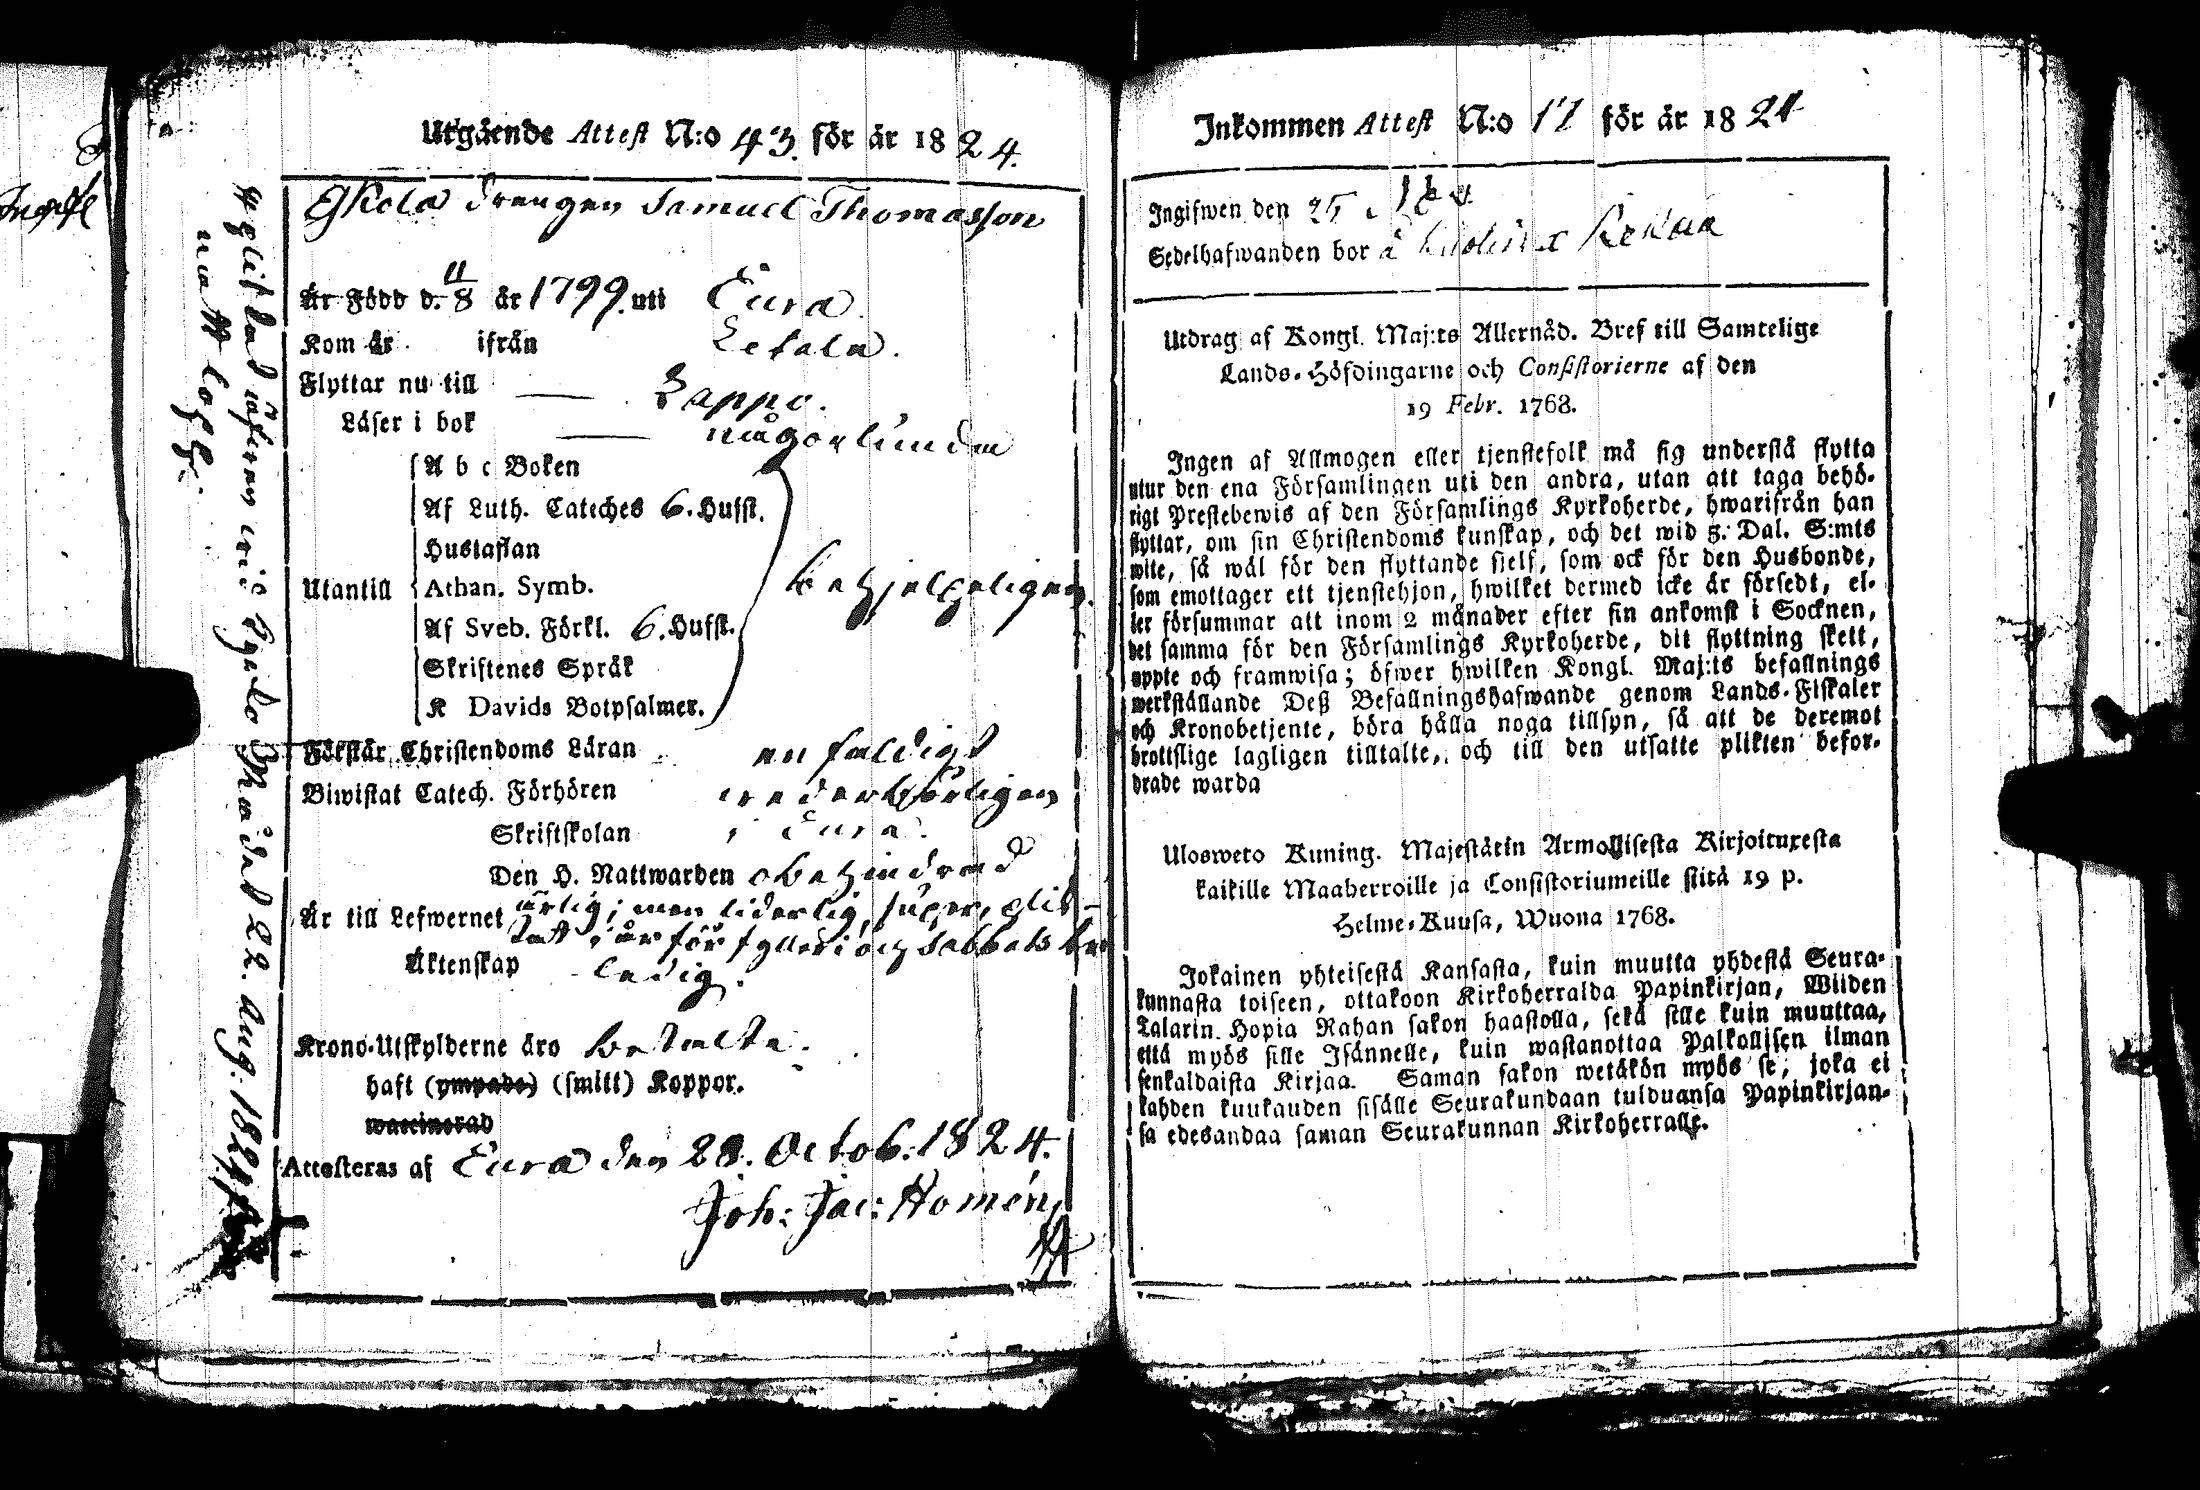 Utgående Attest N:o 43. för år 1824.
Skola drengen Samuel Thomasson
Är Född d. 11/8 år 1799. uti Eura.
Kom år ifrån Letala.
Flyttar nu till Lappo.
Läser i bok någorlunda
A b c Boken
Af Luth. Cateches 6. Hufst.
Hustaflan
Utantill Athan. Symb. behjelpeligen.
Af Sveb. Förkl. 6. Hufst.
Skriftenes Språk
K Davids Botpsalmer.
Förstår Christendoms Läran enfaldigt
Biwistat Catech. Förhören wederbörligen
Skriftskolan i Eura.
Den H. Nattwarden obehindrad
Är till Lefwernet ärlig; men liderlig, super, plik-
tat i år för fylleri och sabbats
Äktenskap ledig.
Krono-Utskylderne äro betalta.
haft (ympade) (smitt) Koppor.
waccinerad
Attesteras af Eura den 28. Octob. 1824.
Joh: Jac: Homén
Aug. 1824
Inkommen Attest N:o 17 för år 1824
Ingifwen den
Sedelhafwanden bor å
Utdrag af Kongl. Maj:ts Allernåd. Bref till Samtelige
Lands-Höfdingarne och Consistorierne af den
19 Febr. 1768.
Ingen af Allmogen eller tjenstefolk må sig understå flytta
utur den ena Församlingen uti den andra, utan att taga behö-
rigt Prestebewis af den Församlings Kyrkoherde, hwarifrån han
flyttar, om sin Christendoms kunskap, och det wid 5. Dal. S:mts
wite, så wäl för den flyttande sielf, som ock för den Husbonde,
som emottager ett tjenstehjon, hwilket dermed icke är försedt, el-
ler försummar att inom 2 månader efter sin ankomst i Socknen,
det samma för den Församlings Kyrkoherde, dit flyttning skett,
uppte och framwisa; öfwer hwilken Kongl. Maj:ts befallnings
werkställande Deß Befallningshafwande genom Lands-Fiskaler
och Kronobetjente, böra hålla noga tillsyn, så att de deremot
brottslige lagligen tilltalte, och till den utsatte plikten befor-
drade warda
Uloswetо Kuning. Majestätin Armollisesta Kirjoituxesta
kaikille Maaherroille ja Consistoriumeille siitä 19 p.
Helme-Kuusa, Wuona 1768.
Jokainen yhteisestä Kansasta, kuin muutta yhdestä Seura-
kunnasta toiseen, ottakoon Kirkoherralda Papinkirjan, Wiiden
Talarin Hopia Rahan sakon haastolla, sekä sille kuin muuttaa,
että myös sille Isännelle, kuin wastanottaa Palkollisen ilman
senkaldaista Kirjaa. Saman sakon wetäkön myös se, joka ei
kahden kuukauden sisälle Seurakundaan tulduansa Papinkirjan-
sa edesandaa saman Seurakunnan Kirkoherralle.